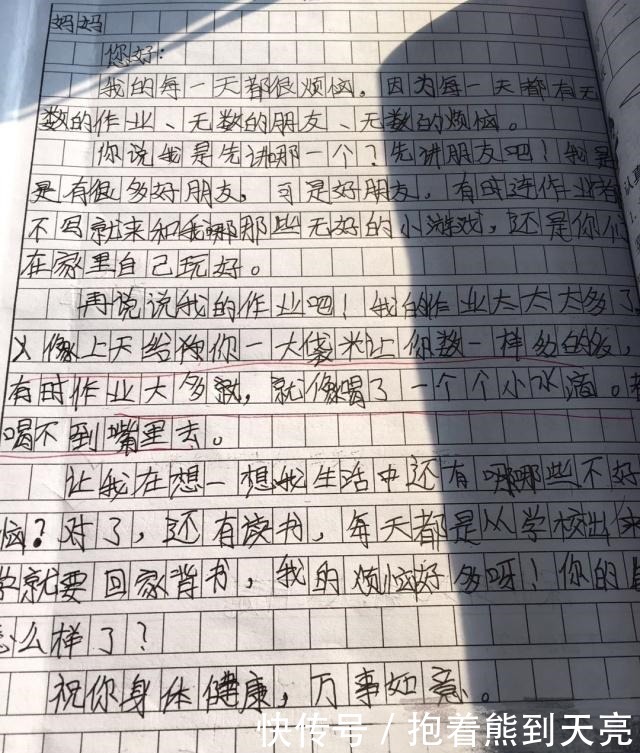 妈妈
你好:
我的每一天都很烦恼。因为每一天都有无
数的作业、无数的朋友、无数的烦恼。
你说我是先讲哪一个?先讲朋友吧!我是
是有很多好朋友,可是好朋友,有时连作业都
不写就来和我哪那些无好的小游戏,还是你们
在家里自己玩好。
再说说我的作业吧!我的作业太太太多了
像上天给你一大袋米让你数一样多的多,
有时作业太多就,就像喝了一个个小水滴。都
喝不到嘴里去。
让我在想一想我生活中还有哪哪些不好
恼?对了,还有读书,每天都是从学校出来
学就要回家背书,我的烦恼好多呀!你的
怎么样了?
祝你身体健康,万事如意。
快传号/抱着熊到天亮